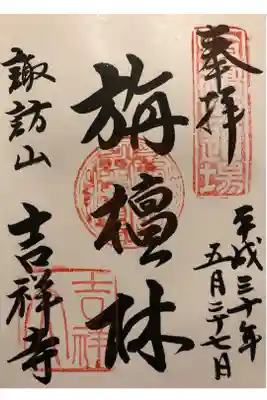 奉拝
平成三十年
五月二十七日
旃檀林
諏訪山
吉祥寺
吉祥